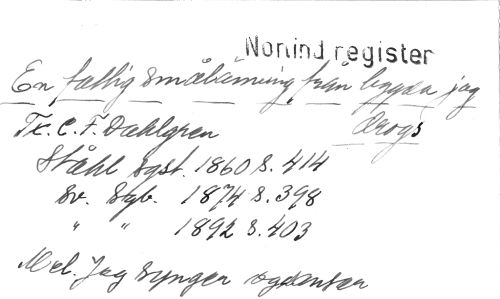 Norlind register
En fattig smålänning från byggda jag
drogs
Tx. C. F. Dahlgren
Ståhl sgst. 1860 s. 414
Sv. Sgb. 1874 s. 398
" " 1892 s. 403
Mel. Jag synger og dansen